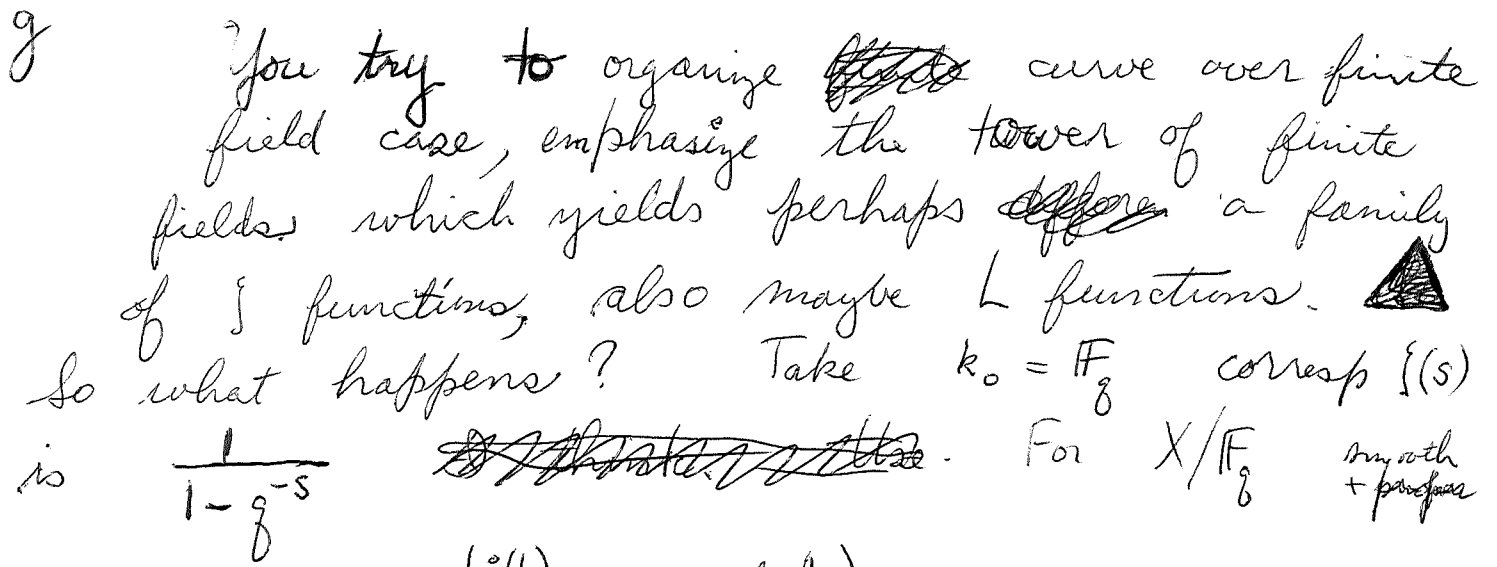 g You try to organize curve over finite
field case, emphasize the tower of finite
fields which yields perhaps a family
of ζ functions, also maybe L functions.
So what happens? Take k₀ = 𝔽_q corresp ζ(s)
is 1/(1 - q^{-s}) . For X/𝔽_q smooth + proper